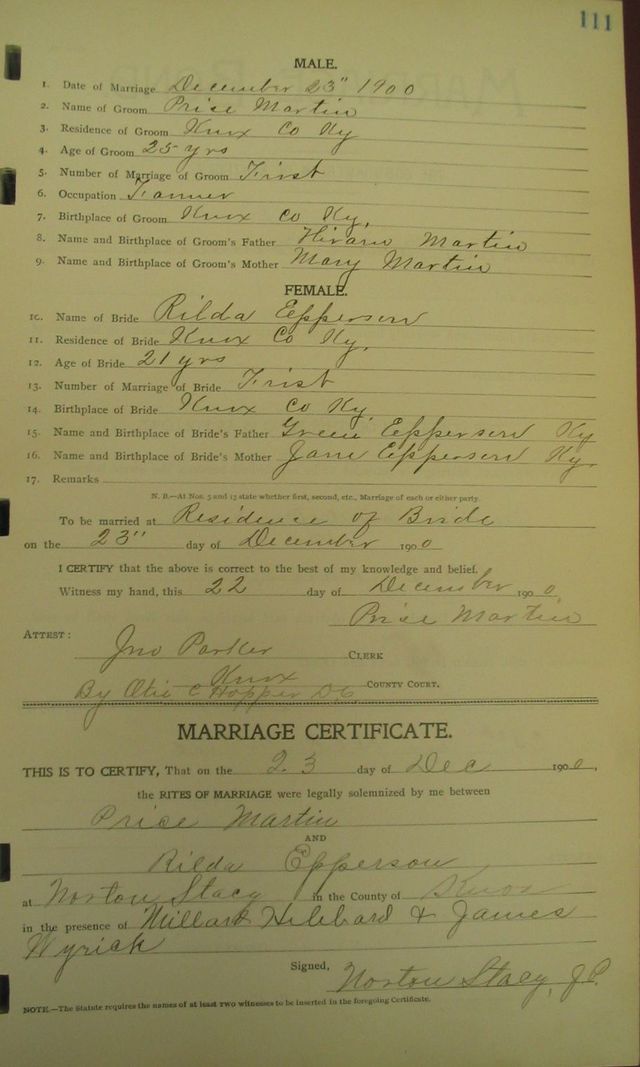 111
MALE.
1. Date of Marriage December 23" 1900
2. Name of Groom Price Martin
3. Residence of Groom Knox Co Ky
4. Age of Groom 25 yrs
5. Number of Marriage of Groom First
6. Occupation Farmer
7. Birthplace of Groom Knox Co Ky.
8. Name and Birthplace of Groom's Father Hiram Martin
9. Name and Birthplace of Groom's Mother Mary Martin
FEMALE.
10. Name of Bride Rilda Epperson
11. Residence of Bride Knox Co Ky.
12. Age of Bride 21 yrs
13. Number of Marriage of Bride First
14. Birthplace of Bride Knox Co Ky
15. Name and Birthplace of Bride's Father Green Epperson Ky
16. Name and Birthplace of Bride's Mother Jane Epperson Ky.
17. Remarks
N. B.—At Nos. 5 and 13 state whether first, second, etc., Marriage of each or either party.
To be married at Residence of Bride
on the 23" day of December 1900
I CERTIFY that the above is correct to the best of my knowledge and belief.
Witness my hand, this 22 day of December 1900
Price Martin
ATTEST:
Jno Parker CLERK
Knox COUNTY COURT.
By Otis C Hopper DC
MARRIAGE CERTIFICATE.
THIS IS TO CERTIFY, That on the 23 day of Dec 1900,
the RITES OF MARRIAGE were legally solemnized by me between
Price Martin
AND
Rilda Epperson
at Norton Stacy in the County of Knox
in the presence of Millard Hibbard & James
Wyrick
Signed, Norton Stacy, J.P.
NOTE.—The Statute requires the names of at least two witnesses to be inserted in the foregoing Certificate.